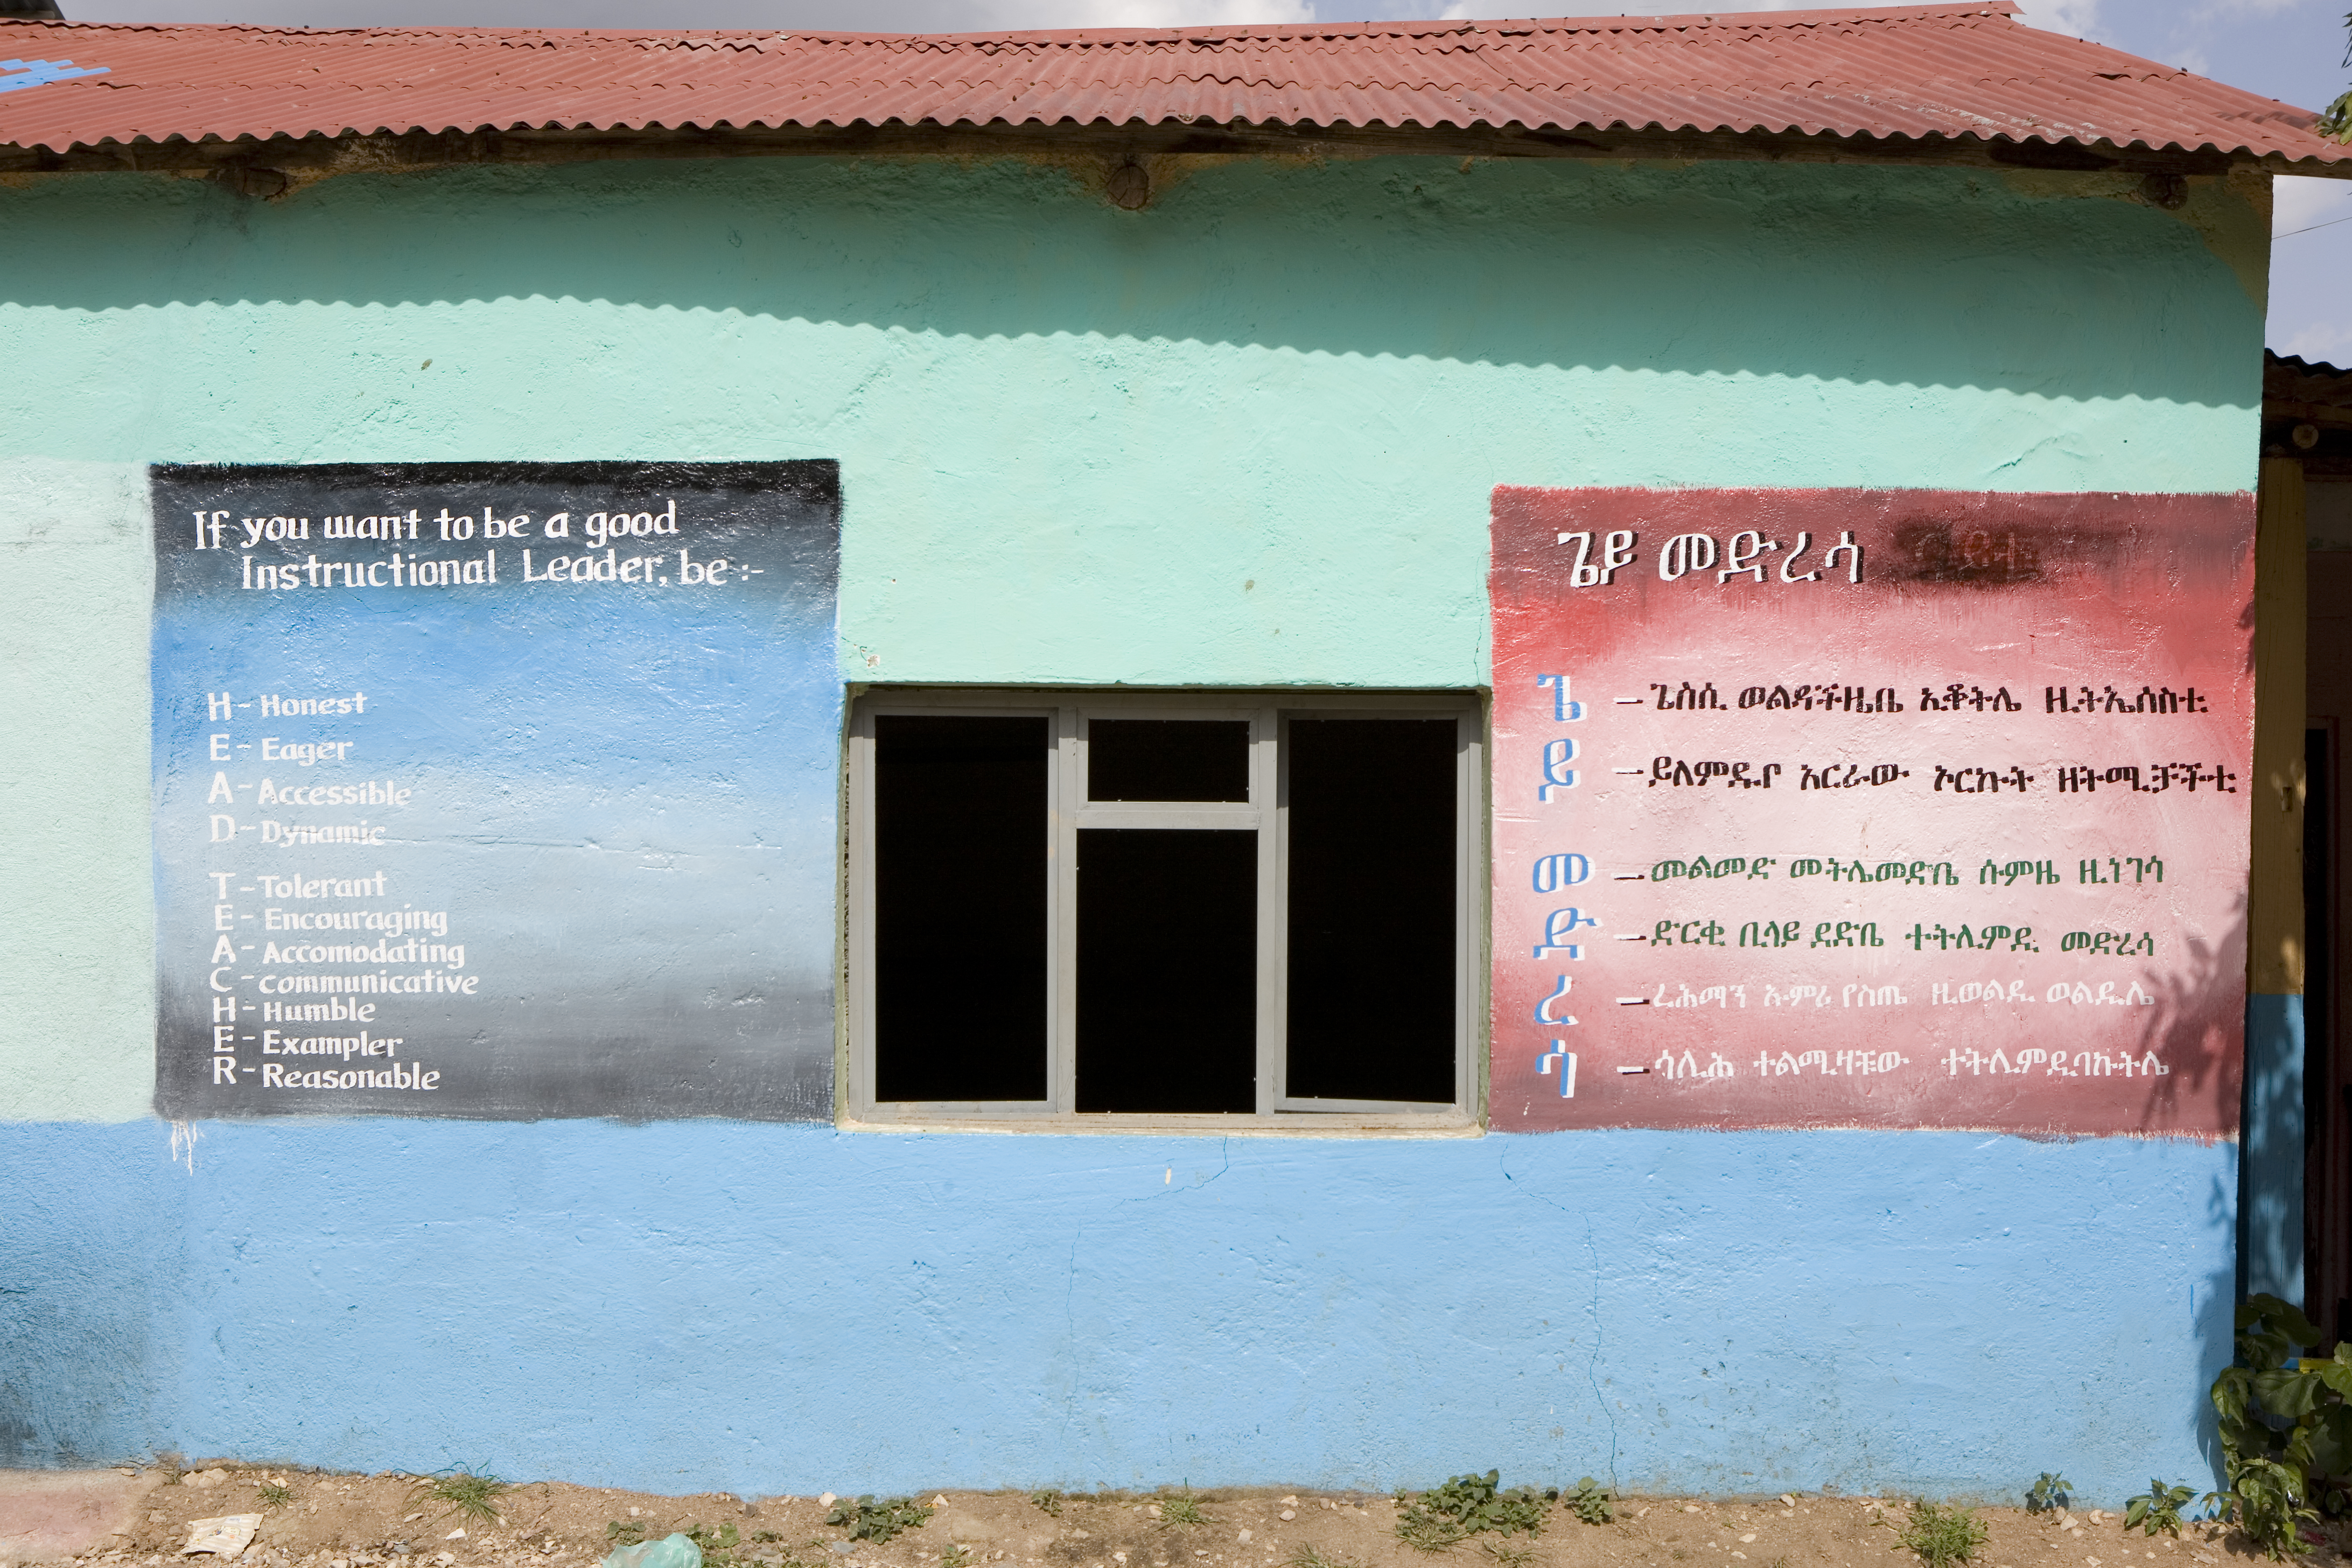 If you want to be a good
Instructional Leader, be :-
H - Honest
E - Eager
A - Accessible
D - Dynamic
T - Tolerant
E - Encouraging
A - Accomodating
C - communicative
H - Humble
E - Exampler
R - Reasonable
ጌይ መድረሳ
ጌ - ጌስሲ ወልዳችዜቤ ኢቆትሌ ዚትኤሰስቲ
ይ - ይለምዱዮ አርራው ኦርኩት ዘትሚቻችቲ
መ - መልመድ መትሌመድቤ ሱምዜ ዚነገሳ
ድ - ድርቂ ቢላይ ደድቤ ተትሊምዲ መድረሳ
ረ - ረሕማን ኡምሪ የስጤ ዚወልዲ ወልዱሌ
ሳ - ሳሊሕ ተልሚዛቹው ተትሊምዲባኩትሌ